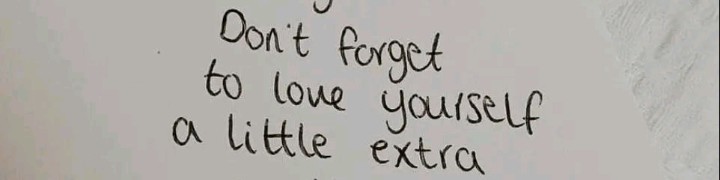 Don't forget
to love yourself
a little extra